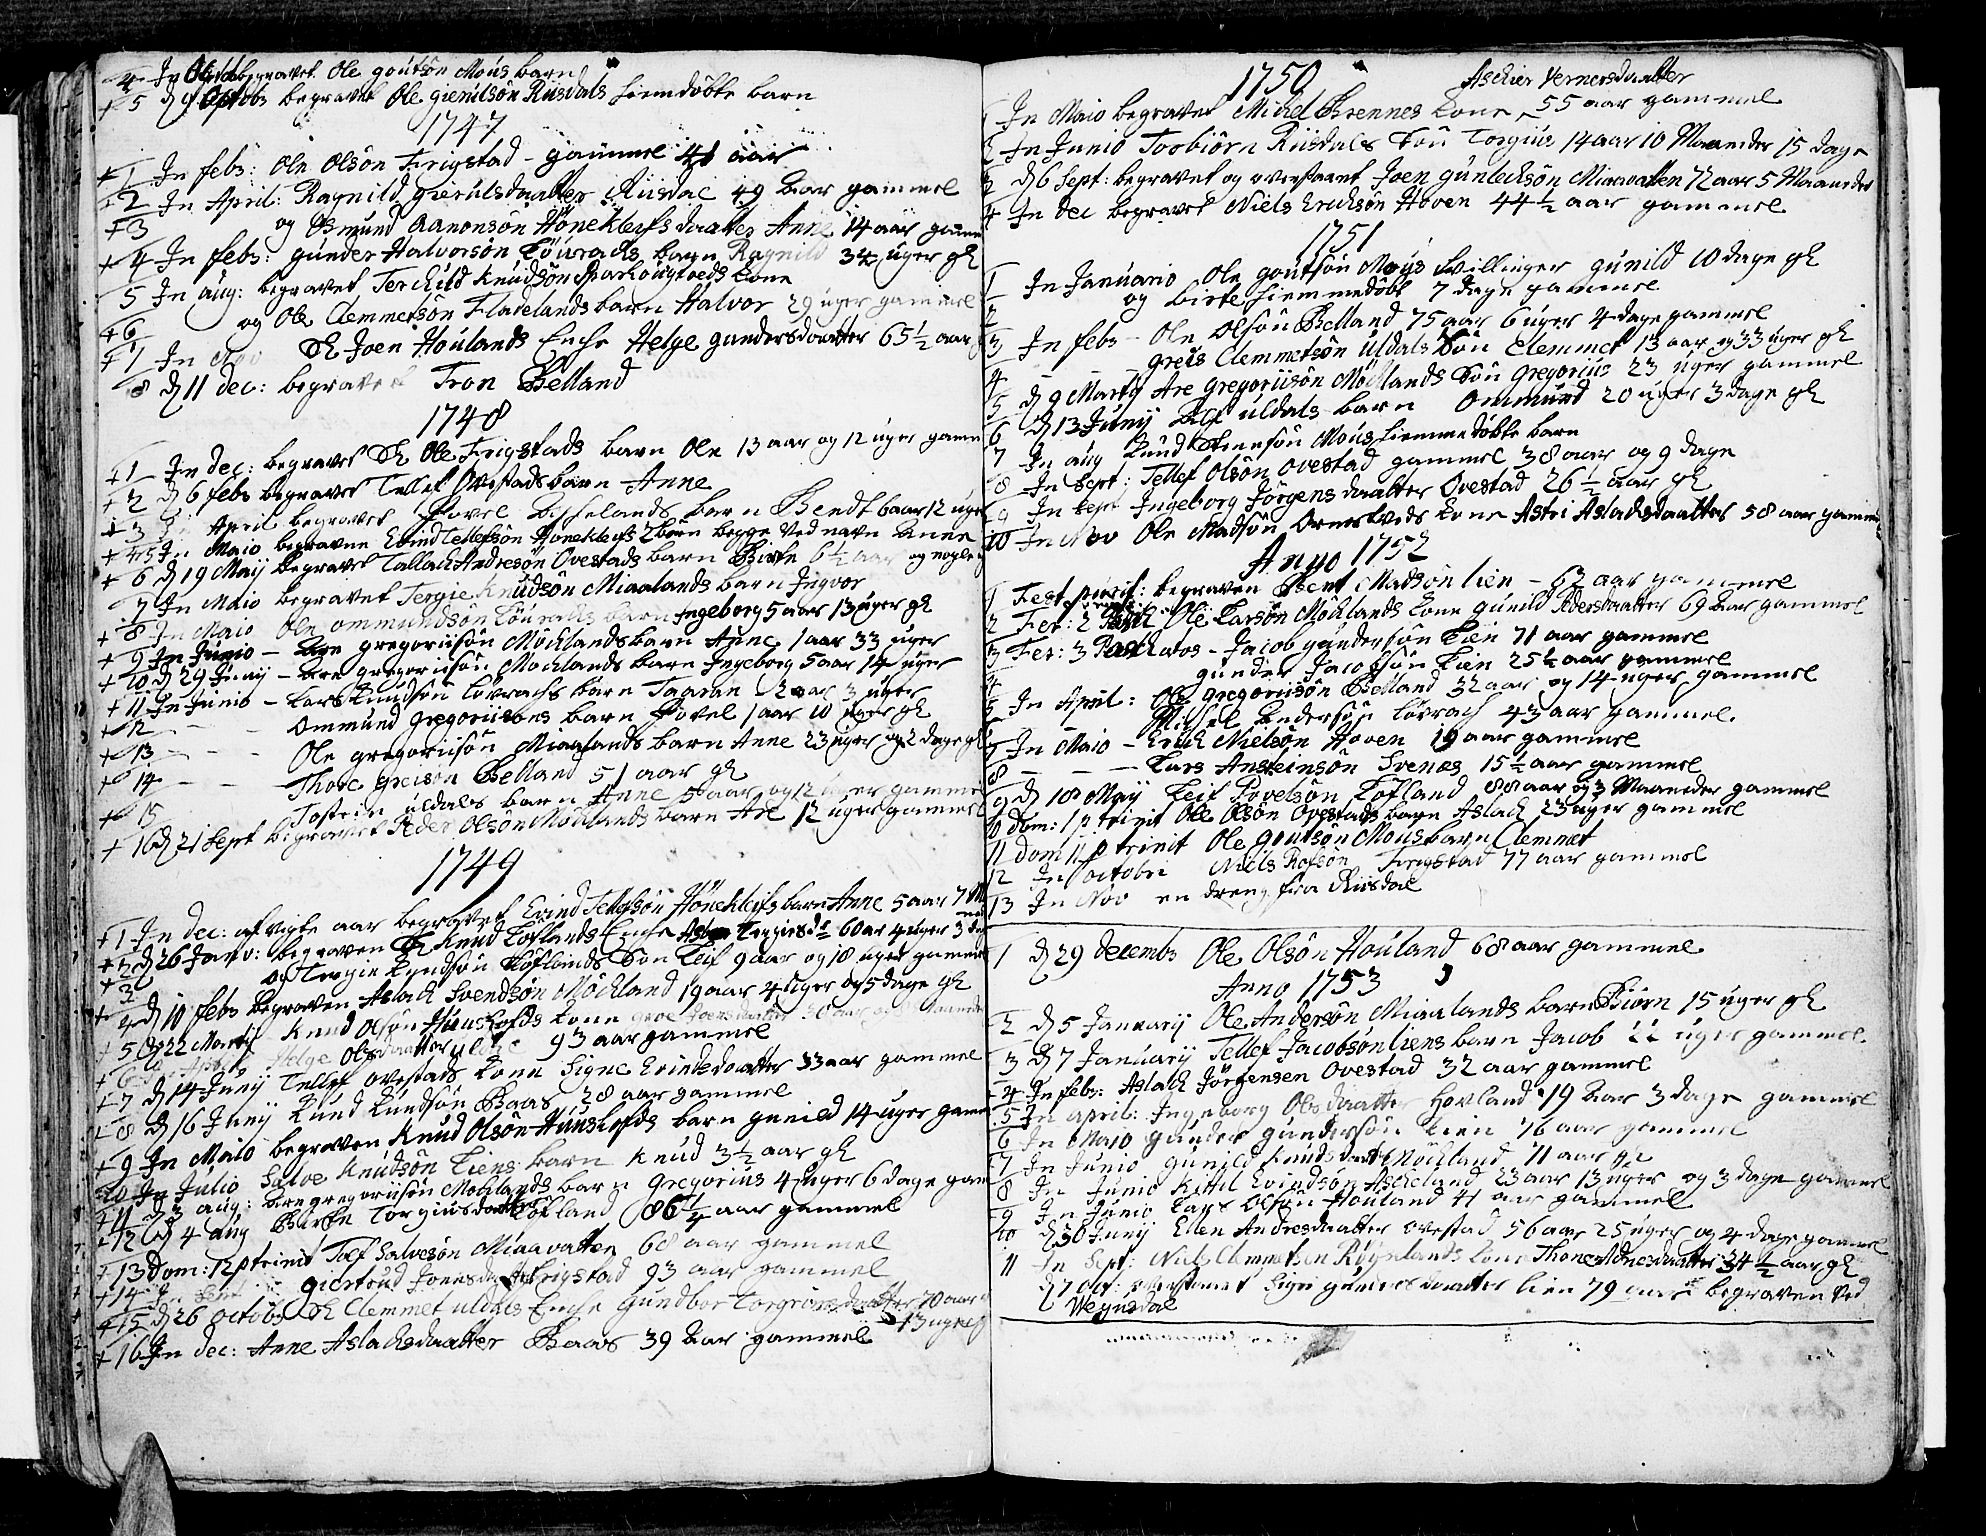 4 In begravet Ole goutsön Moüs barn
+ 5 begravet Ole gierulsön Riisdals hiemdöbte barn
1747
+ 1 In febr: Ole Olsön Frigstad - gammel 41 aar
+ 2 In April: Ragnild gierulsdaatter Riisdal 49 aar gammel
+ 3 og Osmund Aanonsön Höneklefs daatter Anne 14 aar
+ 4 In febr: gunder Halvorsön barn Ragnild 34 uger gl
5 In aug: begravet Terchild Knudsön kone
+ 6 og Ole Clemmetsön Fladelands barn Halvor 29 uger gammel
+ 7 In Nov Joen Houlands Enche Helge gundersdaatter 65 1/2 aar
8 d 11 dec: begravet Tron Belland
1748
+ 1 In dec: begravet Ole Frigstads barn Ole 13 aar og 12 uger
+ 2 d 6 febr begravet Tellef Ovestads barn Anne
+ 3 April begravet Povel barn Bendt 6 aar 12 uger
+ 4.5 In Maio begravne Evind Tellefsön Höneklefs 2 börn begge ved navn Anne
+ 6 d 19 Maij begravet Tallach Andresön Ovestads barn Birte 6 1/2 aar
7 In Maio begravet Tergie Knudsön Miaalands barn Ingvor
+ 8 In Maio Ole Ommundsön barn Ingeborg 5 aar 13 uger gl
+ 9 In Junio - Are gregoriisön Möchlands barn 1 aar 33 uger
+ 10 d 29 Junij - Are gregoriisön Möchlands barn Ingeborg 5 aar 14 uger
+ 11 In Junio - Lars Knudsön Lövrachs barn 2 aar 3 uger
+ 12 - - Ommund gregoriisöns barn Povel 1 aar 10 uger gl
+ 13 - - - Ole gregoriisön Miaalands barn Anne 23 uger og 2 dage gl
+ 14 - - Thore Belland 51 aar gl
+ 15 Tostein Uldals barn Anne 5 aar og 12 uger
+ 16 d 21 Sept begravet Peder Olsön Möchlands barn Are 12 uger gammel
1749
+ 1 In dec: afvigte aar begravet Evind Tellefsön Höneklefs barn Anne 5 aar 7
+ 2 d 26 Janv: begraven Knud Loflands Enche Torgiersd 60 aar 4 uger 3
+ 3 og Torgie Loflands Sön Leif 9 aar og 18 uger
+ 4 d 10 febr begraven Aslach Svendsön Möchland 19 aar 4 uger og 5 dage gl
+ 5 d 22 Martij Knud Olsön kone
+ 6 Helge Olsdaatter 93 aar gammel
+ 7 d 14 Junij Tellef Ovestads kone Signe Evindsdaatter 33 aar gammel
+ 8 d 16 Junij Knud Knudsön Baas 28 aar gammel
+ 9 In Maio begraven Knud Olsön barn gunild 14 uger
+ 10 In Julio Salve Knudsön Liens barn Knud 3 1/2 aar gl
+ 11 d 3 aug: Are gregoriisön Möchlands barn Gregorius 4 uger 6 dage
+ 12 d 4 aug Birte Torgiusdaatter Lofland 86 1/4 aar gammel
+ 13 Dom: 12 p trinit Salvesön Miaavatten 68 aar gammel
+ 14 In Sept giertrud Joensdaatter Frigstad 93 aar gammel
+ 15 d 26 octobr Clemmet Uldals Enche gundbor 70 aar
13 uger
+ 16 In dec: Anne Aslachsdaatter Baas 39 aar gammel
1750
Aschier Vernersdaatter
1 In Maio begravet Michel Brennes kone 55 aar gammel
2 In Junio Torbiörn Riisdals Sön Torgius 14 aar 10 Maaneder 15 dage
3 d 6 Sept: begravet og overfaret Joen gunlechsön Miaavatten 72 aar 5 Maaneder
4 In dec begravet Niels Erichsön Hoven 44 1/2 aar gammel
1751
1 In Januario Ole goutsön Moÿs tvillinger gunild 10 dage gl
2 og Birte hiemmedöbt 7 dage gammel
3 In febr - Ole Olsön Belland 75 aar 6 uger 4 dage gammel
4 - greis Clemmetsön Uldals Sön Clemmet 13 aar og 33 uger gl
5 d 9 Martij Are gregoriisön Möchlands Sön Gregorius 23 uger gammel
6 d 13 Junij Uldals barn Ommund 20 uger 3 dage gl
7 In aug Moüs hiemmedöbte barn
8 In Sept: Tellef Olsön Ovestad gammel 38 aar og 9 dage
9 In Sept Ingeborg Jörgensdaatter Ovestad 26 1/2 aar gl
10 In Nov Ole Madsön kone Astri Aslachsdaatter 58 aar
Anno 1752
1 Fest purif: begraven Bent Madsön Lien - 62 aar gammel
2 Fer: 2 Ole Larsön Möchlands kone gunild Pedersdaatter 69 aar gammel
3 Fer: 3 Paschatos - Jacob gundersön Lien 71 aar gammel
4 gunder Jacobsön Lien 25 1/2 aar gammel
5 In April: Ole gregoriisön Belland 32 aar og 14 uger gammel
6 Michel Andersön Lövrach 43 aar gammel.
7 In Maio - Erich Nielsön Hoven 19 aar gammel
8 - - - Lars Ansteinsön Svenes 15 1/2 aar gammel
9 d 18 Maij Leif Povelsön Lofland 88 aar og 3 Maaneder gammel
10 Dom: 1 p trinit Ole Olsön Ovestads barn Aslach 23 uger gammel
11 Dom 11 p trinit Ole goutsön Moüs barn Clemmet
12 In octobri Niels Rolfsön Frigstad 77 aar gammel
13 In Nov en dreng fra Riisdal
1 d 29 decembr Ole Olsön Houland 68 aar gammel
Anno 1753
2 d 5 Januarij Ole Andersön Miaalands barn Biörn 15 uger gl
3 d 7 Januarij Tellef Jacobsön Liens barn Jacob 22 uger gammel.
4 In febr: Aslach Jörgensen Ovestad 32 aar gammel
5 In april: Ingeborg Olsdaatter Hovland 19 aar 3 dage gammel
6 In Maio gunder gundersön Lien 76 aar gammel
7 In Junio gunild Knudsdaatter Möchland 11 aar gl
8 In Junio Kittil Evindsön Ascheland 23 aar 13 uger og 3 dage gammel
9 In Junio Lars Olsön Houland 41 aar gammel
10 d 30 Junij Ellen Andresdaatter Ovestad 56 aar 25 uger og 4 dage gammel
11 In Sept: Niels Clemmetsen Röÿnlands kone Thone Adnesdaatter 34 1/2 aar gl
d 7 Oct: overfaret Sigri gundersdaatter Lien 79 aar begraven ved
Wegusdal